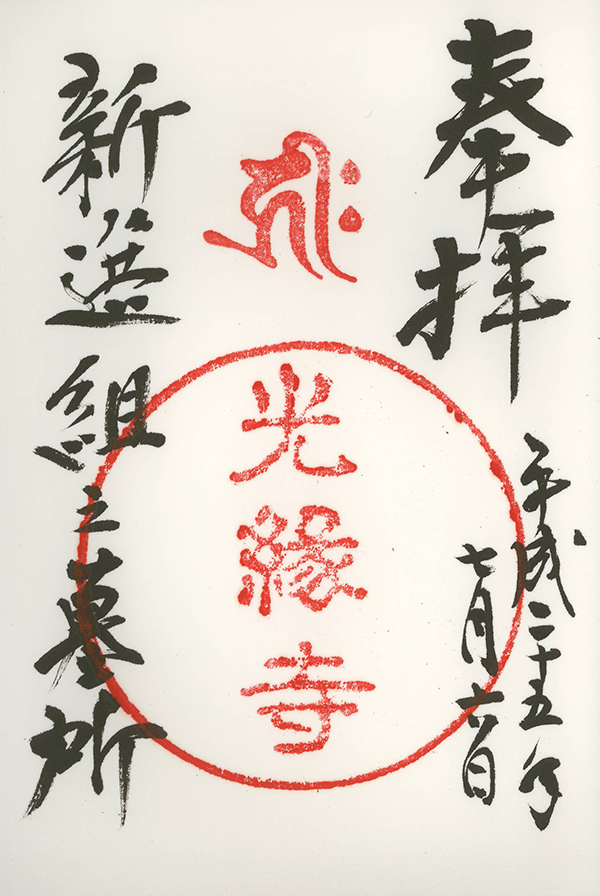 奉拝
平成二十五年
七月六日
𑖮𑖿𑖨𑖱𑖾
光縁寺
新選組之墓所